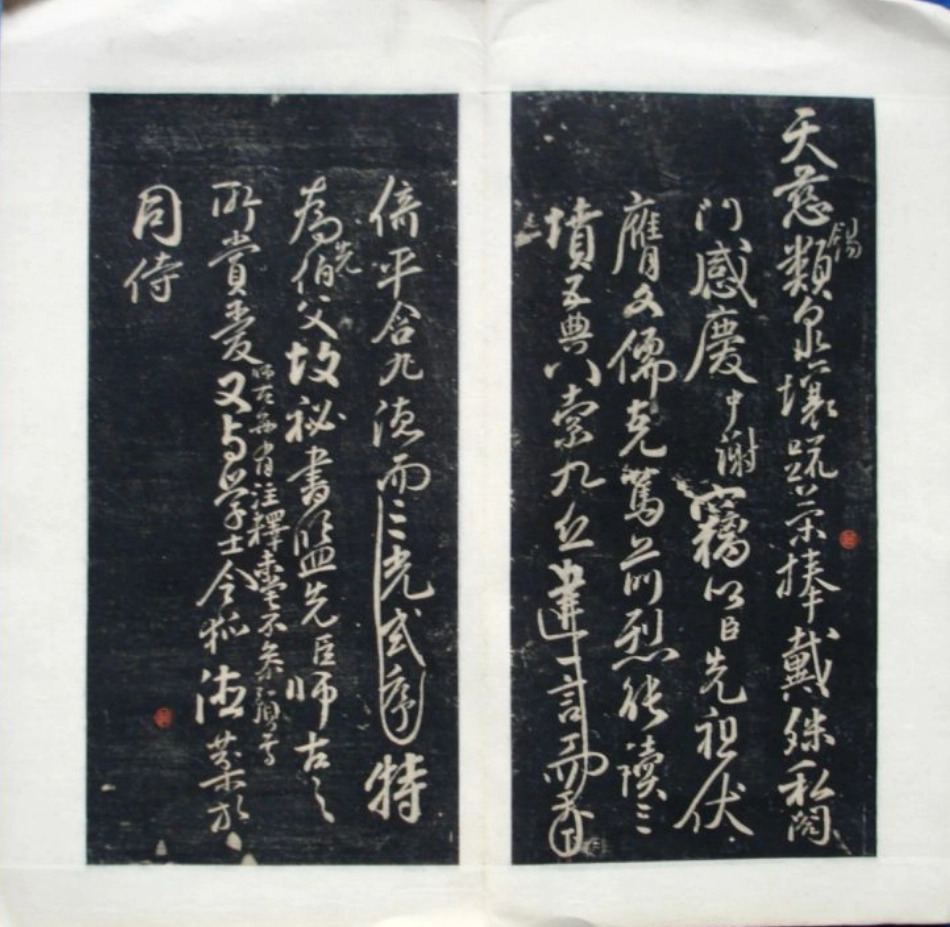 天慈錫類泉壤疏榮捧戴殊私闔
門感慶中謝竊以臣先祖伏
膺文儒克篤前烈能讀三
墳五典八索九丘一言而
含九德而三光式序特
為先伯父故祕書監先臣師古之
師古每有注釋未嘗不參預焉
所賞愛又与學士令狐德棻於
同侍